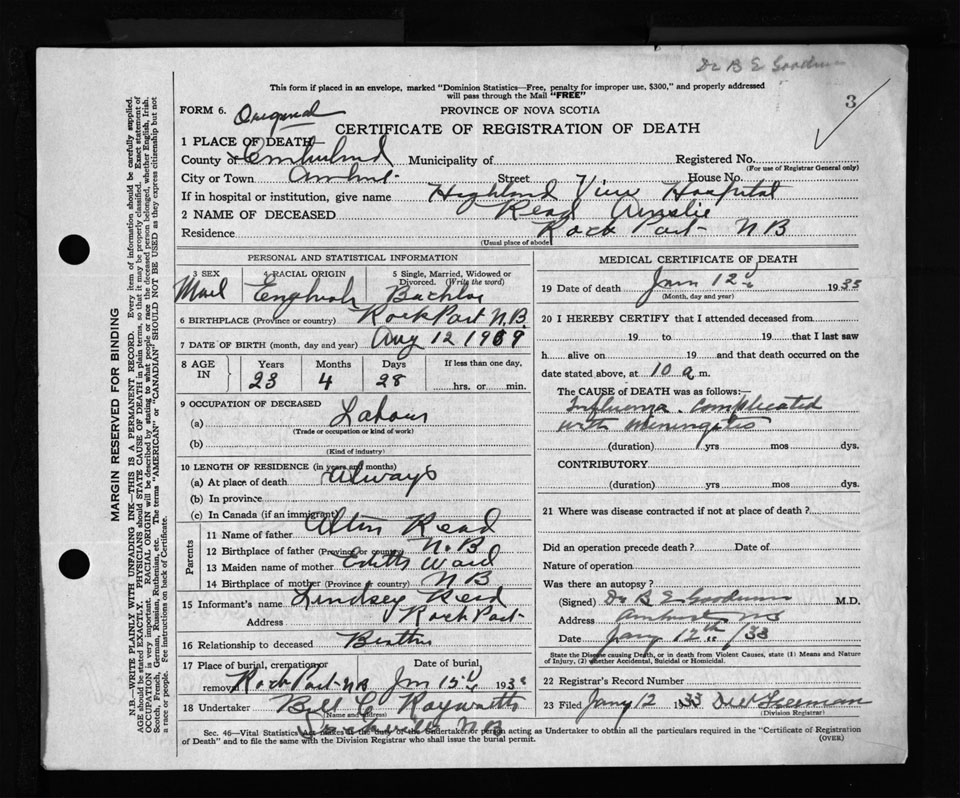 Dr B E Goodwin
This form if placed in an envelope, marked "Dominion Statistics—Free, penalty for improper use, $300," and properly addressed
will pass through the Mail "FREE"
3
FORM 6. Original PROVINCE OF NOVA SCOTIA
CERTIFICATE OF REGISTRATION OF DEATH
1 PLACE OF DEATH
County or Municipality of Registered No.
(For use of Registrar General only)
City or Town Street House No.
If in hospital or institution, give name Highland View Hospital
2 NAME OF DECEASED Read Amslie
Residence Rock Port N B
(Usual place of abode)
PERSONAL AND STATISTICAL INFORMATION
3 SEX 4 RACIAL ORIGIN 5 Single, Married, Widowed or Divorced. (Write the word)
Male English
6 BIRTHPLACE (Province or country) Rock Port N.B.
7 DATE OF BIRTH (month, day and year) Aug 12 19
8 AGE IN Years Months Days If less than one day,
23 4 28 hrs. or min.
9 OCCUPATION OF DECEASED
(a) Labour
(Trade or occupation or kind of work)
(b)
(Kind of industry)
10 LENGTH OF RESIDENCE (in years and months)
(a) At place of death Always
(b) In province
(c) In Canada (if an immigrant)
Parents
11 Name of father Read
12 Birthplace of father (Province or country) N.B
13 Maiden name of mother Edith Ward
14 Birthplace of mother (Province or country) N B
15 Informant's name Lindsey Read
Address Rock Port
16 Relationship to deceased Brother
17 Place of burial, cremation or removal Rock Port N B Date of burial Jan 15 193
18 Undertaker
(Name and address)
Sackville N B
MEDICAL CERTIFICATE OF DEATH
19 Date of death Jan 12 1933
(Month, day and year)
20 I HEREBY CERTIFY that I attended deceased from
19 to 19 that I last saw
h alive on 19 and that death occurred on the
date stated above, at 10 a m.
The CAUSE OF DEATH was as follows:—
Influenza complicated
with meningitis
(duration) yrs mos dys.
CONTRIBUTORY
(duration) yrs mos dys.
21 Where was disease contracted if not at place of death?
Did an operation precede death? Date of
Nature of operation
Was there an autopsy?
(Signed) Dr B E Goodwin M.D.
Address Amherst NS
Date Jany 12th /33
State the Disease causing Death, or in death from Violent Causes, state (1) Means and Nature
of Injury, (2) whether Accidental, Suicidal or Homicidal.
22 Registrar's Record Number
23 Filed Jany 12 1933
(Division Registrar)
Sec. 46—Vital Statistics makes it the duty of the Undertaker or person acting as Undertaker to obtain all the particulars required in the "Certificate of Registration
of Death" and to file the same with the Division Registrar who shall issue the burial permit.
(OVER)
MARGIN RESERVED FOR BINDING
N.B.—WRITE PLAINLY WITH UNFADING INK—THIS IS A PERMANENT RECORD. Every item of information should be carefully supplied.
AGE should be stated EXACTLY. PHYSICIANS should STATE CAUSE OF DEATH in plain terms, so that it may be properly classified. Exact statement of
OCCUPATION is very important. RACIAL ORIGIN will be described by stating to what people or race the deceased person belonged, whether English, Irish,
Scotch, French, German, Russian, Ruthenian, etc. The terms "AMERICAN" or "CANADIAN" SHOULD NOT BE USED as they express citizenship but not
a race or people. See instructions on back of Certificate.